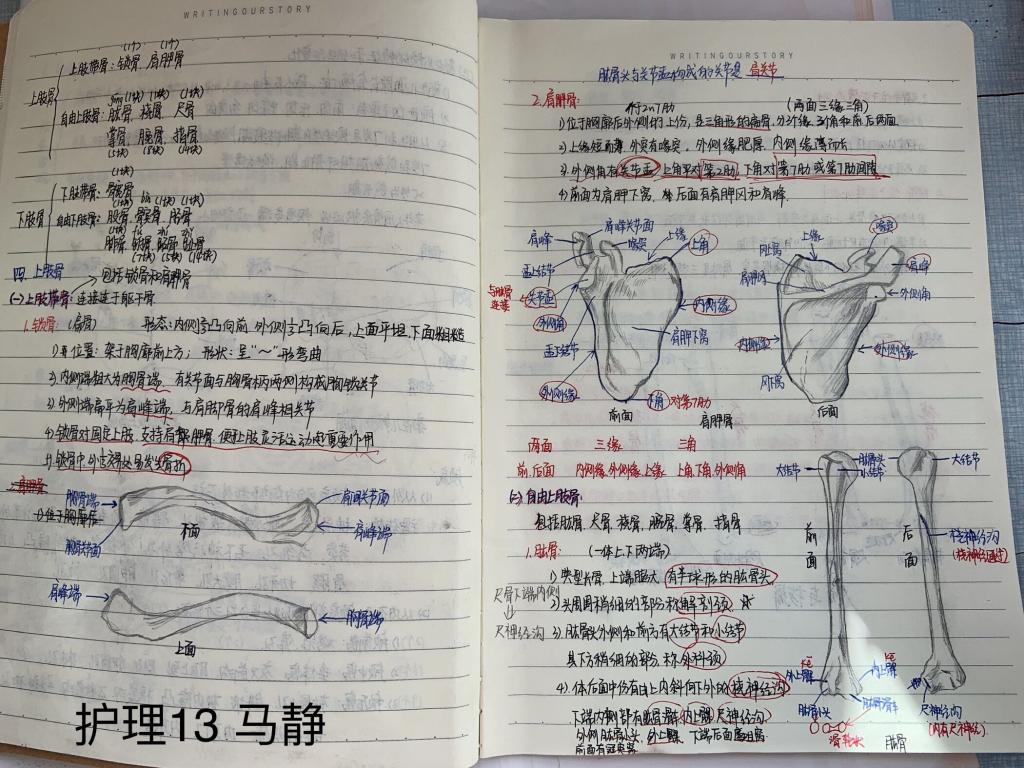 WRITINGOURSTORY
(1个) (1个)
上肢带骨:锁骨、肩胛骨
上肢骨
(1块) (1块) (1块)
自由上肢骨:肱骨 桡骨 尺骨
掌骨 腕骨 指骨
(5块) (8块) (14块)
(1块)
下肢带骨:髋骨
下肢骨
自由下肢骨:股骨、髌骨、胫骨
(7块) (5块) (14块)
四.上肢骨
包括锁骨和肩胛骨
(一)上肢带骨:连接连于躯干骨
1.锁骨:(肩骨) 形态:内侧弓凸向前 外侧弓凸向后,上面平坦,下面粗糙
1)位置:架于胸廓前上方; 形状:呈"~"形弯曲
2)内侧端粗大为胸骨端 有关节面与胸骨柄两侧构成胸锁关节
3)外侧端扁平为肩峰端,与肩胛骨的肩峰相关节
4)锁骨对固定上肢、支持肩胛骨、便于上肢灵活运动起重要作用
5)锁骨中外1/3交界处易发生骨折
2.肩胛骨
1)位于胸廓后
胸骨端
胸骨关节面
下面
肩峰关节面
肩峰端
肩峰端
胸骨端
上面
护理13 马静
WRITINGOURSTORY
肱骨头与关节盂构成的关节是 肩关节
2.肩胛骨: 介于2~7肋 (两面三缘三角)
1)位于胸廓后外侧的上份,是三角形的扁骨,分3个缘、3个角和前后两面
2)上缘短而薄 外突有喙突,外侧缘肥厚,内侧缘薄而长
3)外侧角有关节盂,上角平对第2肋,下角对第7肋或第7肋间隙
4)前面为肩胛下窝 后面有肩胛冈和肩峰.
肩峰
肩峰关节面
喙突
上缘
上角
盂上结节
与肱骨连接
关节盂
外侧角
盂下结节
外侧缘
内侧缘
肩胛下窝
下角 对第7肋
前面
肩胛骨
冈上窝
上缘
喙突
肩胛冈
肩峰
外侧角
内侧缘
外侧缘
冈下窝
后面
两面 三缘 三角
前.后面 内侧缘.外侧缘.上缘 上角.下角.外侧角
(二)自由上肢骨:
包括肱骨、尺骨、桡骨、腕骨、掌骨、指骨
1.肱骨: (一体上下两端)
1)典型长骨,上端膨大,有半球形的肱骨头
2)头周围稍细的部分称解剖颈 ☆
3)肱骨头外侧和前方有大结节和小结节
其下方稍细的部分,称外科颈
4).体后面中份有自上内斜向下外的桡神经沟
下端内侧部有肱骨滑车、内上髁、尺神经沟
外侧肱骨小头,外上髁 下端后面鹰嘴窝
前面有冠突窝
尺骨下端内侧
尺神经沟
大结节
肱骨头
小结节
前面
外上髁
内上髁
肱骨小头
肱骨滑车
滑车状
大结节
后面
桡神经沟
(桡神经通过)
尺神经沟
(内有尺神经)
肱骨